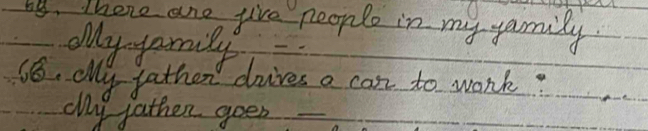 There are five people in my family.
My family --
66. My father drives a car to work :
My father goes —